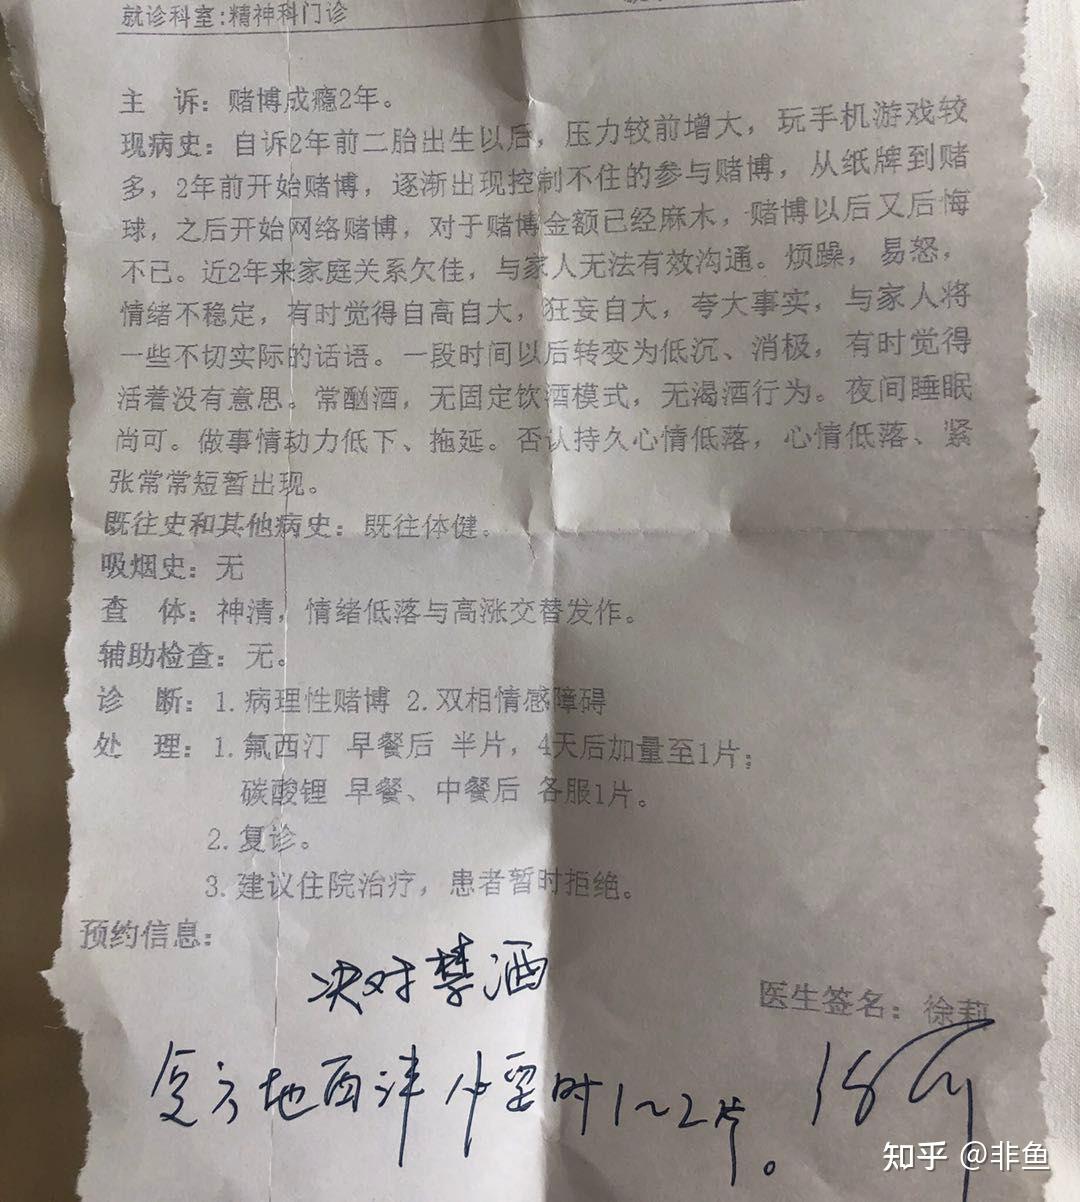 就诊科室:精神科门诊
主 诉：赌博成瘾2年。
现病史：自诉2年前二胎出生以后，压力较前增大，玩手机游戏较
多，2年前开始赌博，逐渐出现控制不住的参与赌博，从纸牌到赌
球，之后开始网络赌博，对于赌博金额已经麻木，赌博以后又后悔
不已。近2年来家庭关系欠佳，与家人无法有效沟通。烦躁，易怒，
情绪不稳定，有时觉得自高自大，狂妄自大，夸大事实，与家人将
一些不切实际的话语。一段时间以后转变为低沉、消极，有时觉得
活着没有意思。常酗酒，无固定饮酒模式，无渴酒行为。夜间睡眠
尚可。做事情动力低下、拖延。否认持久心情低落，心情低落、紧
张常常短暂出现。
既往史和其他病史：既往体健。
吸烟史：无
查 体：神清，情绪低落与高涨交替发作。
辅助检查：无。
诊 断：1.病理性赌博 2.双相情感障碍
处 理：1.氟西汀 早餐后 半片，4天后加量至1片；
碳酸锂 早餐、中餐后 各服1片。
2.复诊。
3.建议住院治疗，患者暂时拒绝。
预约信息：
决对禁酒
医生签名：徐莉
复方地西泮 必要时1~2片。
知乎 @非鱼